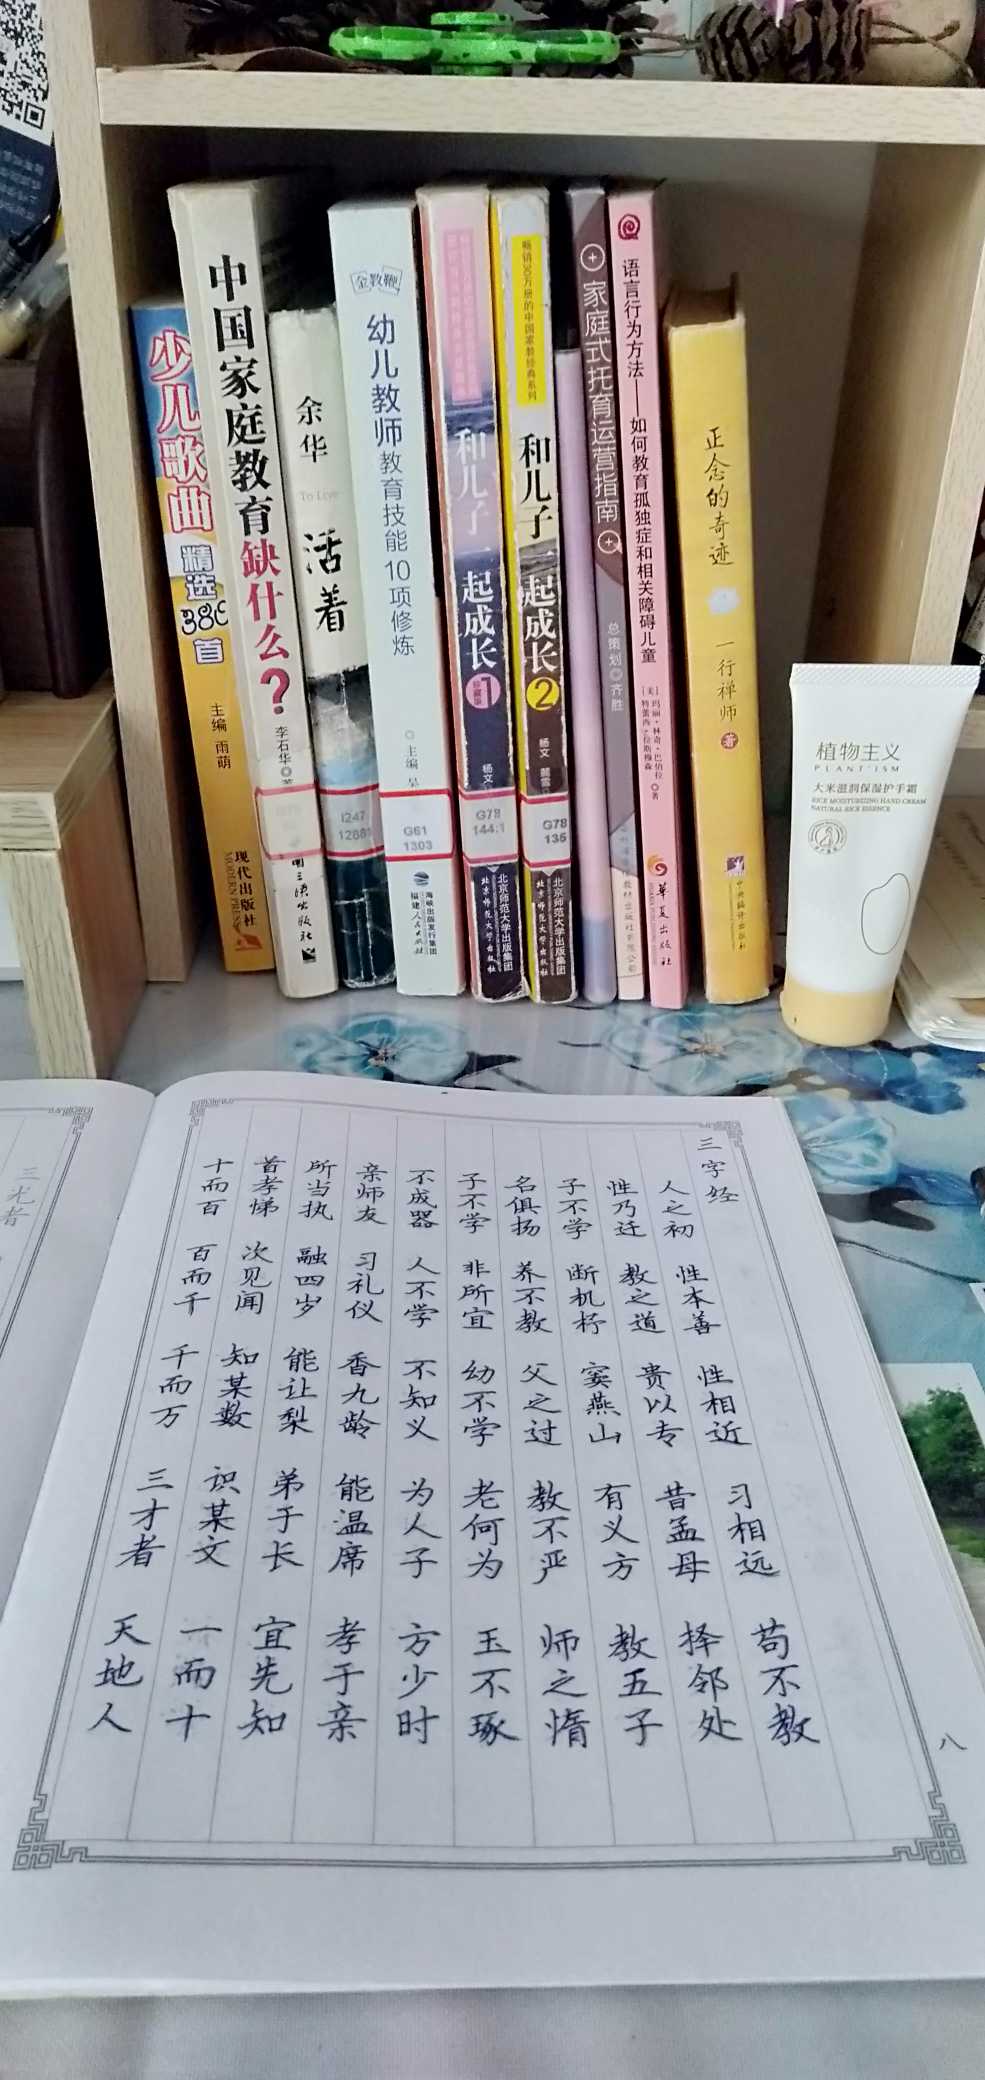 少儿歌曲
精选380首
主编 雨萌
现代出版社
MODERN PRESS
中国家庭教育缺什么?
李石华◎著
余华
To Live
活着
I247
12881
金教鞭
幼儿教师教育技能10项修炼
◎主编 吴
G61
1303
海峡出版发行集团
福建人民出版社
和儿子一起成长
珍藏版
1
杨文
G78
144:1
北京师范大学出版集团
北京师范大学出版社
畅销30万册的中国家教经典系列
和儿子一起成长
2
杨文
G78
135
北京师范大学出版集团
北京师范大学出版社
家庭式托育运营指南
总策划◎齐胜
语言行为方法——如何教育孤独症和相关障碍儿童
[美]玛丽·林奇·巴伯拉
特蕾西·拉斯穆森 ◎著
华夏出版社
正念的奇迹
一行禅师 著
中央编译出版社
植物主义
PLANT'ISM
大米滋润保湿护手霜
RICE MOISTURIZING HAND CREAM
NATURAL RICE ESSENCE
三字经
人之初 性本善 性相近 习相远 苟不教
性乃迁 教之道 贵以专 昔孟母 择邻处
子不学 断机杼 窦燕山 有义方 教五子
名俱扬 养不教 父之过 教不严 师之惰
子不学 非所宜 幼不学 老何为 玉不琢
不成器 人不学 不知义 为人子 方少时
亲师友 习礼仪 香九龄 能温席 孝于亲
所当执 融四岁 能让梨 弟于长 宜先知
首孝悌 次见闻 知某数 识某文 一而十
十而百 百而千 千而万 三才者 天地人
八
三光者